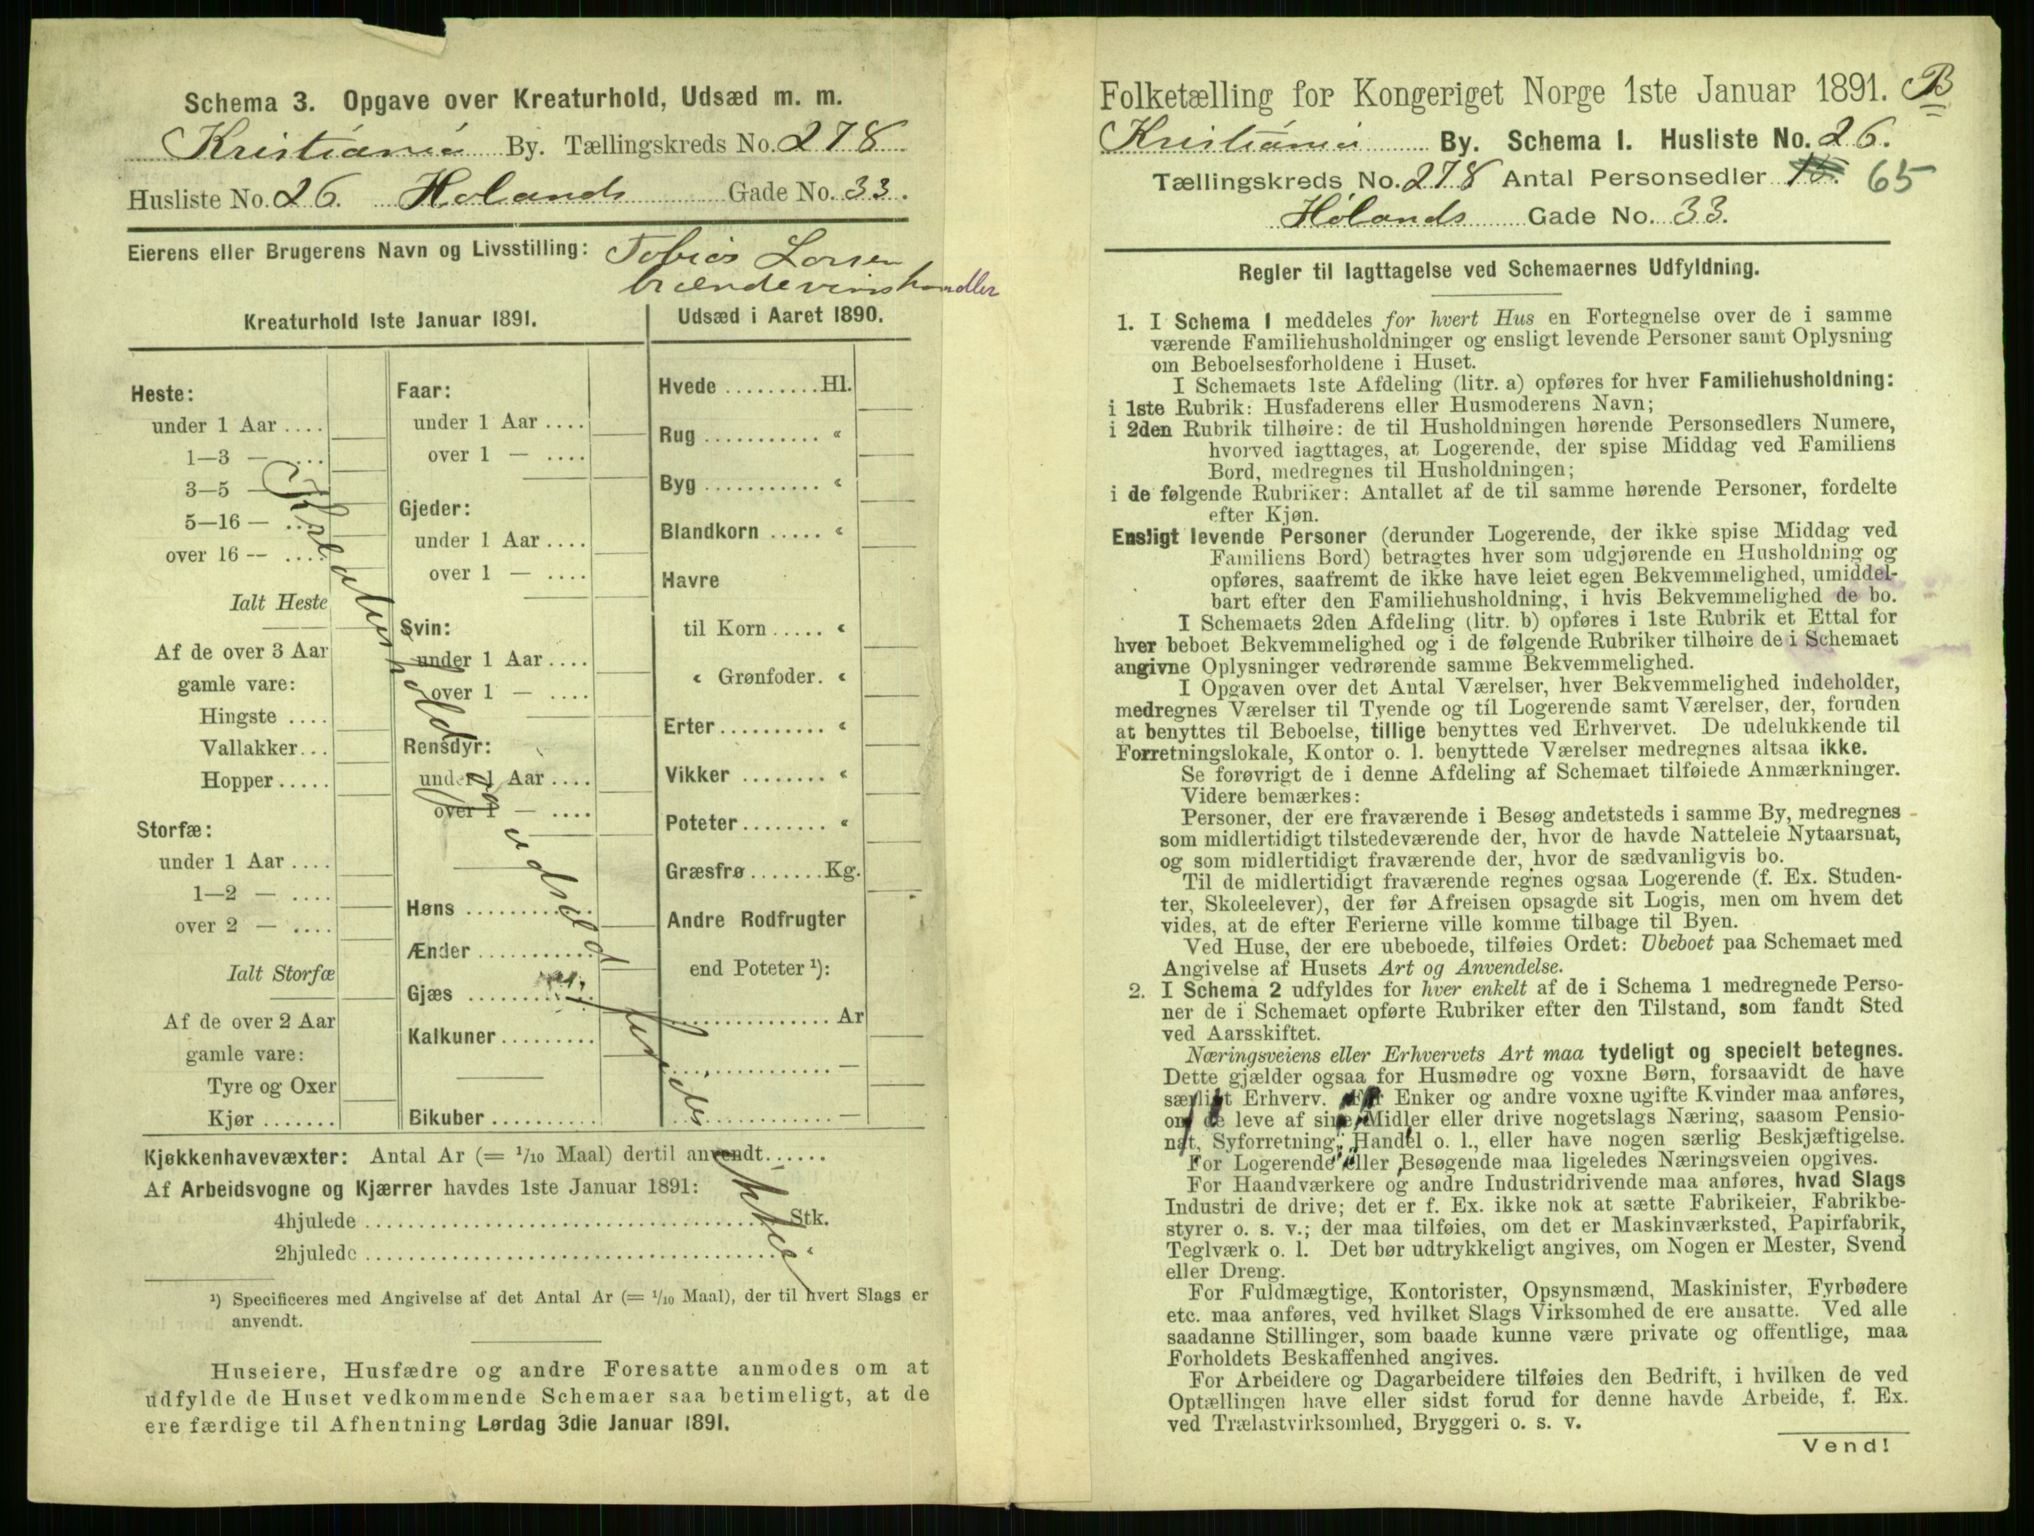 Schema 3. Opgave over Kreaturhold, Udsæd m. m.
Kristiania By. Tællingskreds No. 278
Husliste No. 26. Holands Gade No. 33.
Eierens eller Brugerens Navn og Livsstilling: Tobias Larsen
brændevinshandler
Kreaturhold 1ste Januar 1891.
Heste:
under 1 Aar ....
1—3 — ....
3—5 — ....
5—16 — ....
over 16 — ....
Ialt Heste
Af de over 3 Aar
gamle vare:
Hingste ....
Vallakker...
Hopper.....
Storfæ:
under 1 Aar ....
1—2 — ....
over 2 — ....
Ialt Storfæ
Af de over 2 Aar
gamle vare:
Tyre og Oxer
Kjør .......
Faar:
under 1 Aar ....
over 1 — ....
Gjeder:
under 1 Aar ....
over 1 — ....
Svin:
under 1 Aar ....
over 1 — ....
Rensdyr:
under 1 Aar ....
over 1 — ....
Høns ..........
Ænder ..........
Gjæs ..........
Kalkuner .........
Bikuber .........
Udsæd i Aaret 1890.
Hvede .........Hl.
Rug ........... "
Byg ........... "
Blandkorn ..... "
Havre
til Korn ..... "
" Grønfoder. "
Erter.......... "
Vikker ........ "
Poteter........ "
Græsfrø.......Kg.
Andre Rodfrugter
end Poteter ¹):
............... Ar
............... —
............... —
og udsæd
Kjøkkenhavevæxter: Antal Ar (= 1/10 Maal) dertil anvendt......
Af Arbeidsvogne og Kjærrer havdes 1ste Januar 1891:
4hjulede .................................... Stk.
2hjulede .................................... "
¹) Specificeres med Angivelse af det Antal Ar (= 1/10 Maal), der til hvert Slags er
anvendt.
Huseiere, Husfædre og andre Foresatte anmodes om at
udfylde de Huset vedkommende Schemaer saa betimeligt, at de
ere færdige til Afhentning Lørdag 3die Januar 1891.
Folketælling for Kongeriget Norge 1ste Januar 1891. B
Kristiania By. Schema I. Husliste No. 26.
Tællingskreds No. 278 Antal Personsedler 65
Hølands Gade No. 33.
Regler til Iagttagelse ved Schemaernes Udfyldning.
1. I Schema I meddeles for hvert Hus en Fortegnelse over de i samme
værende Familiehusholdninger og ensligt levende Personer samt Oplysning
om Beboelsesforholdene i Huset.
I Schemaets 1ste Afdeling (litr. a) opføres for hver Familiehusholdning:
i 1ste Rubrik: Husfaderens eller Husmoderens Navn;
i 2den Rubrik tilhøire: de til Husholdningen hørende Personsedlers Numere,
hvorved iagttages, at Logerende, der spise Middag ved Familiens
Bord, medregnes til Husholdningen;
i de følgende Rubriker: Antallet af de til samme hørende Personer, fordelte
efter Kjøn.
Ensligt levende Personer (derunder Logerende, der ikke spise Middag ved
Familiens Bord) betragtes hver som udgjørende en Husholdning og
opføres, saafremt de ikke have leiet egen Bekvemmelighed, umiddel-
bart efter den Familiehusholdning, i hvis Bekvemmelighed de bo.
I Schemaets 2den Afdeling (litr. b) opføres i 1ste Rubrik et Ettal for
hver beboet Bekvemmelighed og i de følgende Rubriker tilhøire de i Schemaet
angivne Oplysninger vedrørende samme Bekvemmelighed.
I Opgaven over det Antal Værelser, hver Bekvemmelighed indeholder,
medregnes Værelser til Tyende og til Logerende samt Værelser, der, foruden
at benyttes til Beboelse, tillige benyttes ved Erhvervet. De udelukkende til
Forretningslokale, Kontor o. l. benyttede Værelser medregnes altsaa ikke.
Se forøvrigt de i denne Afdeling af Schemaet tilføiede Anmærkninger.
Videre bemærkes:
Personer, der ere fraværende i Besøg andetsteds i samme By, medregnes
som midlertidigt tilstedeværende der, hvor de havde Natteleie Nytaarsnat,
og som midlertidigt fraværende der, hvor de sædvanligvis bo.
Til de midlertidigt fraværende regnes ogsaa Logerende (f. Ex. Studen-
ter, Skoleelever), der før Afreisen opsagde sit Logis, men om hvem det
vides, at de efter Ferierne ville komme tilbage til Byen.
Ved Huse, der ere ubeboede, tilføies Ordet: Ubeboet paa Schemaet med
Angivelse af Husets Art og Anvendelse.
2. I Schema 2 udfyldes for hver enkelt af de i Schema 1 medregnede Perso-
ner de i Schemaet opførte Rubriker efter den Tilstand, som fandt Sted
ved Aarsskiftet.
Næringsveiens eller Erhvervets Art maa tydeligt og specielt betegnes.
Dette gjælder ogsaa for Husmødre og voxne Børn, forsaavidt de have
særligt Erhverv. For Enker og andre voxne ugifte Kvinder maa anføres,
om de leve af sine Midler eller drive nogetslags Næring, saasom Pensio-
nat, Syforretning, Handel o. l., eller have nogen særlig Beskjæftigelse.
For Logerende eller Besøgende maa ligeledes Næringsveien opgives.
For Haandværkere og andre Industridrivende maa anføres, hvad Slags
Industri de drive; det er f. Ex. ikke nok at sætte Fabrikeier, Fabrikbe-
styrer o. s. v.; der maa tilføies, om det er Maskinværksted, Papirfabrik,
Teglværk o. l. Det bør udtrykkeligt angives, om Nogen er Mester, Svend
eller Dreng.
For Fuldmægtige, Kontorister, Opsynsmænd, Maskinister, Fyrbødere
etc. maa anføres, ved hvilket Slags Virksomhed de ere ansatte. Ved alle
saadanne Stillinger, som baade kunne være private og offentlige, maa
Forholdets Beskaffenhed angives.
For Arbeidere og Dagarbeidere tilføies den Bedrift, i hvilken de ved
Optællingen have eller sidst forud for denne havde Arbeide, f. Ex.
ved Trælastvirksomhed, Bryggeri o. s. v.
Vend!